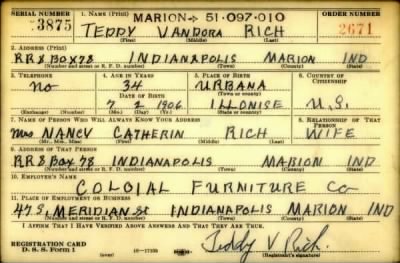 SERIAL NUMBER 1. NAME (Print) MARION→ 51-097-010 ORDER NUMBER
3875 TEDDY VANDORA RICH 2671
(First) (Middle) (Last)
2. ADDRESS (Print)
RR 8 BOX 78 INDIANAPOLIS MARION IND
(Number and street or R. F. D. number) (Town) (County) (State)
3. TELEPHONE 4. AGE IN YEARS 5. PLACE OF BIRTH 6. COUNTRY OF CITIZENSHIP
no 34 URBANA
DATE OF BIRTH (Town or county)
7 2 1906 ILLONISE U.S.
(Exchange) (Number) (Mo.) (Day) (Yr.) (State or country)
7. NAME OF PERSON WHO WILL ALWAYS KNOW YOUR ADDRESS 8. RELATIONSHIP OF THAT PERSON
Mrs NANCY CATHERIN RICH WIFE
(Mr., Mrs., Miss) (First) (Middle) (Last)
9. ADDRESS OF THAT PERSON
RR 8 Box 78 INDIANAPOLIS MARION IND
(Number and street or R. F. D. number) (Town) (County) (State)
10. EMPLOYER'S NAME
COLOIAL FURNITURE Co
11. PLACE OF EMPLOYMENT OR BUSINESS
47 S, MERIDIAN St INDIANAPOLIS MARION IND
(Number and street or R. F. D. number) (Town) (County) (State)
I AFFIRM THAT I HAVE VERIFIED ABOVE ANSWERS AND THAT THEY ARE TRUE.
REGISTRATION CARD
D. S. S. Form 1 Teddy V Rich.
(Registrant's signature)